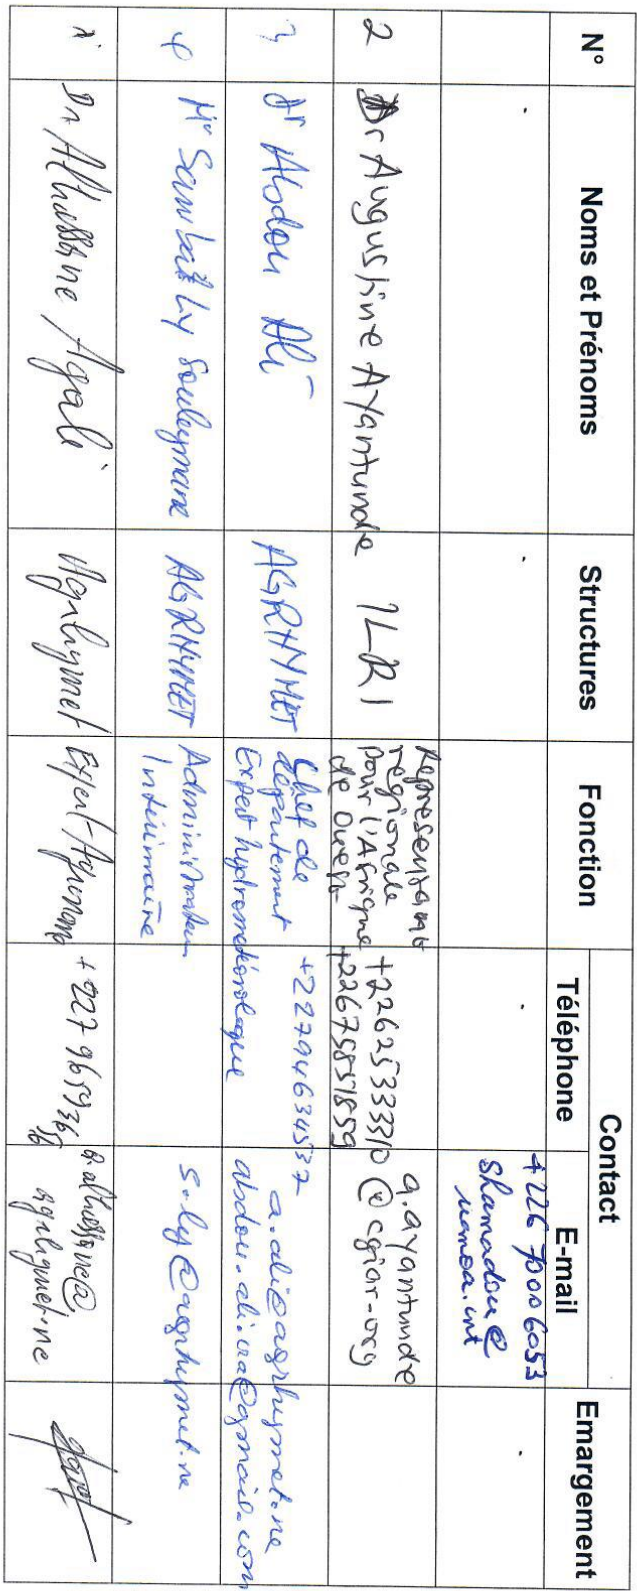 N°
Noms et Prénoms
Structures
Fonction
Contact
Téléphone
E-mail
Emargement
+226 70006053
shamadou@
uemoa.int
2
Dr Augustine Ayantunde
ILRI
Representant
régionale
pour l'Afrique
de Ouest
+22625333310
+22675851859
a.ayantunde
@cgiar.org
3
dr Abdou Ali
AGRHYMET
Chef de
département
Expert hydrométéorologue
+22794634537
a.ali@agrhymet.ne
abdou.ali.va@gmail.com
4
Mr Sambou Ly Souleymane
AGRHYMET
Administrateur
Intérimaire
s.ly@agrhymet.ne
Dr Alhassane Agali
Agrhymet
Expert/Agronome
a.alhassane@
agrhymet.ne